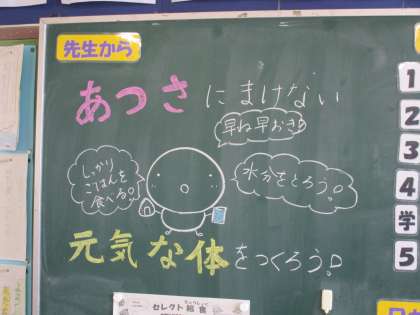 先生から
あつさにまけない
早ね早おき!
しっかり
ごはんを
食べる!
水分をとろう!
元気な体をつくろう!
セレクト給食
1
2
3
4
学
5